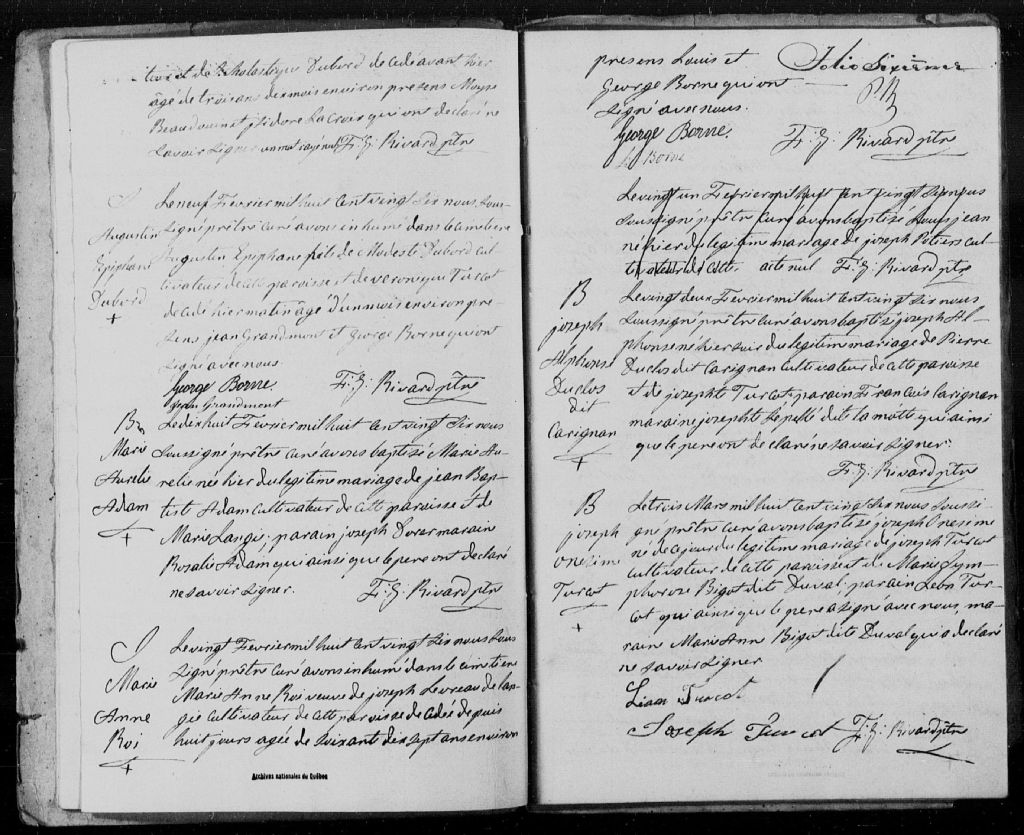 et de Scholastique Dubord decedé avant hier
âgé de trois ans dix mois environ presens Moyse
Beaudouin et isidore La Croix qui ont declaré ne
savoir signer un mot rayé nul F. X. Rivard ptre
S
Augustin
Epiphane
Dubord
+
Le neuf Fevrier mil huit cent vingt six nous sous-
signé prêtre curé avons inhumé dans le cimetiere
Augustin Epiphane fils de Modeste Dubord cul-
tivateur de cette paroisse et de veronique Turcot
decedé hier matin âgé d'un mois environ pre-
sens jean Grandmont et George Borne qui ont
signé avec nous
George Borne F. X. Rivard ptre
jean Grandmont
B
Marie
Aurelie
Adam
+
Le dix huit Fevrier mil huit cent vingt six nous
soussigné prêtre curé avons baptisé Marie Au-
relie née hier du legitime mariage de jean Bap-
tist Adam cultivateur de cette paroisse et de
Marie Lange; parain joseph maraine
Rosalie Adam qui ainsi que le pere ont declaré
ne savoir signer. F. X. Rivard ptre
S
Marie
Anne
Roi
+
Le vingt Fevrier mil huit cent vingt six nous sous
signé prêtre curé avons inhumé dans le cimetiere
Marie Anne Roi veuve de joseph
cultivateur de cette paroisse decedée depuis
huit jours agée de soixante dix sept ans environ
Archives nationales du Québec
presens Louis et
George Borne qui ont
signé avec nous.
George Borne. F. X. Rivard ptre
Ls Borne
Folio Sixieme
Le vingt un Fevrier mil huit cent vingt six nous
soussigné prêtre curé avons baptisé jean
né hier du legitime mariage de joseph cul-
tivateur de cette acte nul F. X. Rivard ptre
B
joseph
Alphonse
Duclos
dit
Carignan
+
Le vingt deux Fevrier mil huit cent vingt six nous
soussigné prêtre curé avons baptisé joseph Al-
phonse né hier soir du legitime mariage de Pierre
Duclos dit Carignan cultivateur de cette paroisse
et de josephte Turcot parain Francois Carignan
maraine josephte Lepellé dite la motte qui ainsi
que le pere ont declaré ne savoir signer.
F. X. Rivard ptre
B
joseph
onésime
Turcot
+
Le trois Mars mil huit cent vingt six nous soussi-
gné prêtre curé avons baptisé joseph Onesime
né ce jour du legitime mariage de joseph Turcot
cultivateur de cette paroisse et de Marie Sym-
phorose Bigot dite Duval; parain Leon Tur-
cot qui ainsi que le pere a signé avec nous, ma-
raine Marie Ann Bigot dite Duval qui a declaré
ne savoir signer
Léon Turcot
Joseph Turcot F. X. Rivard ptre